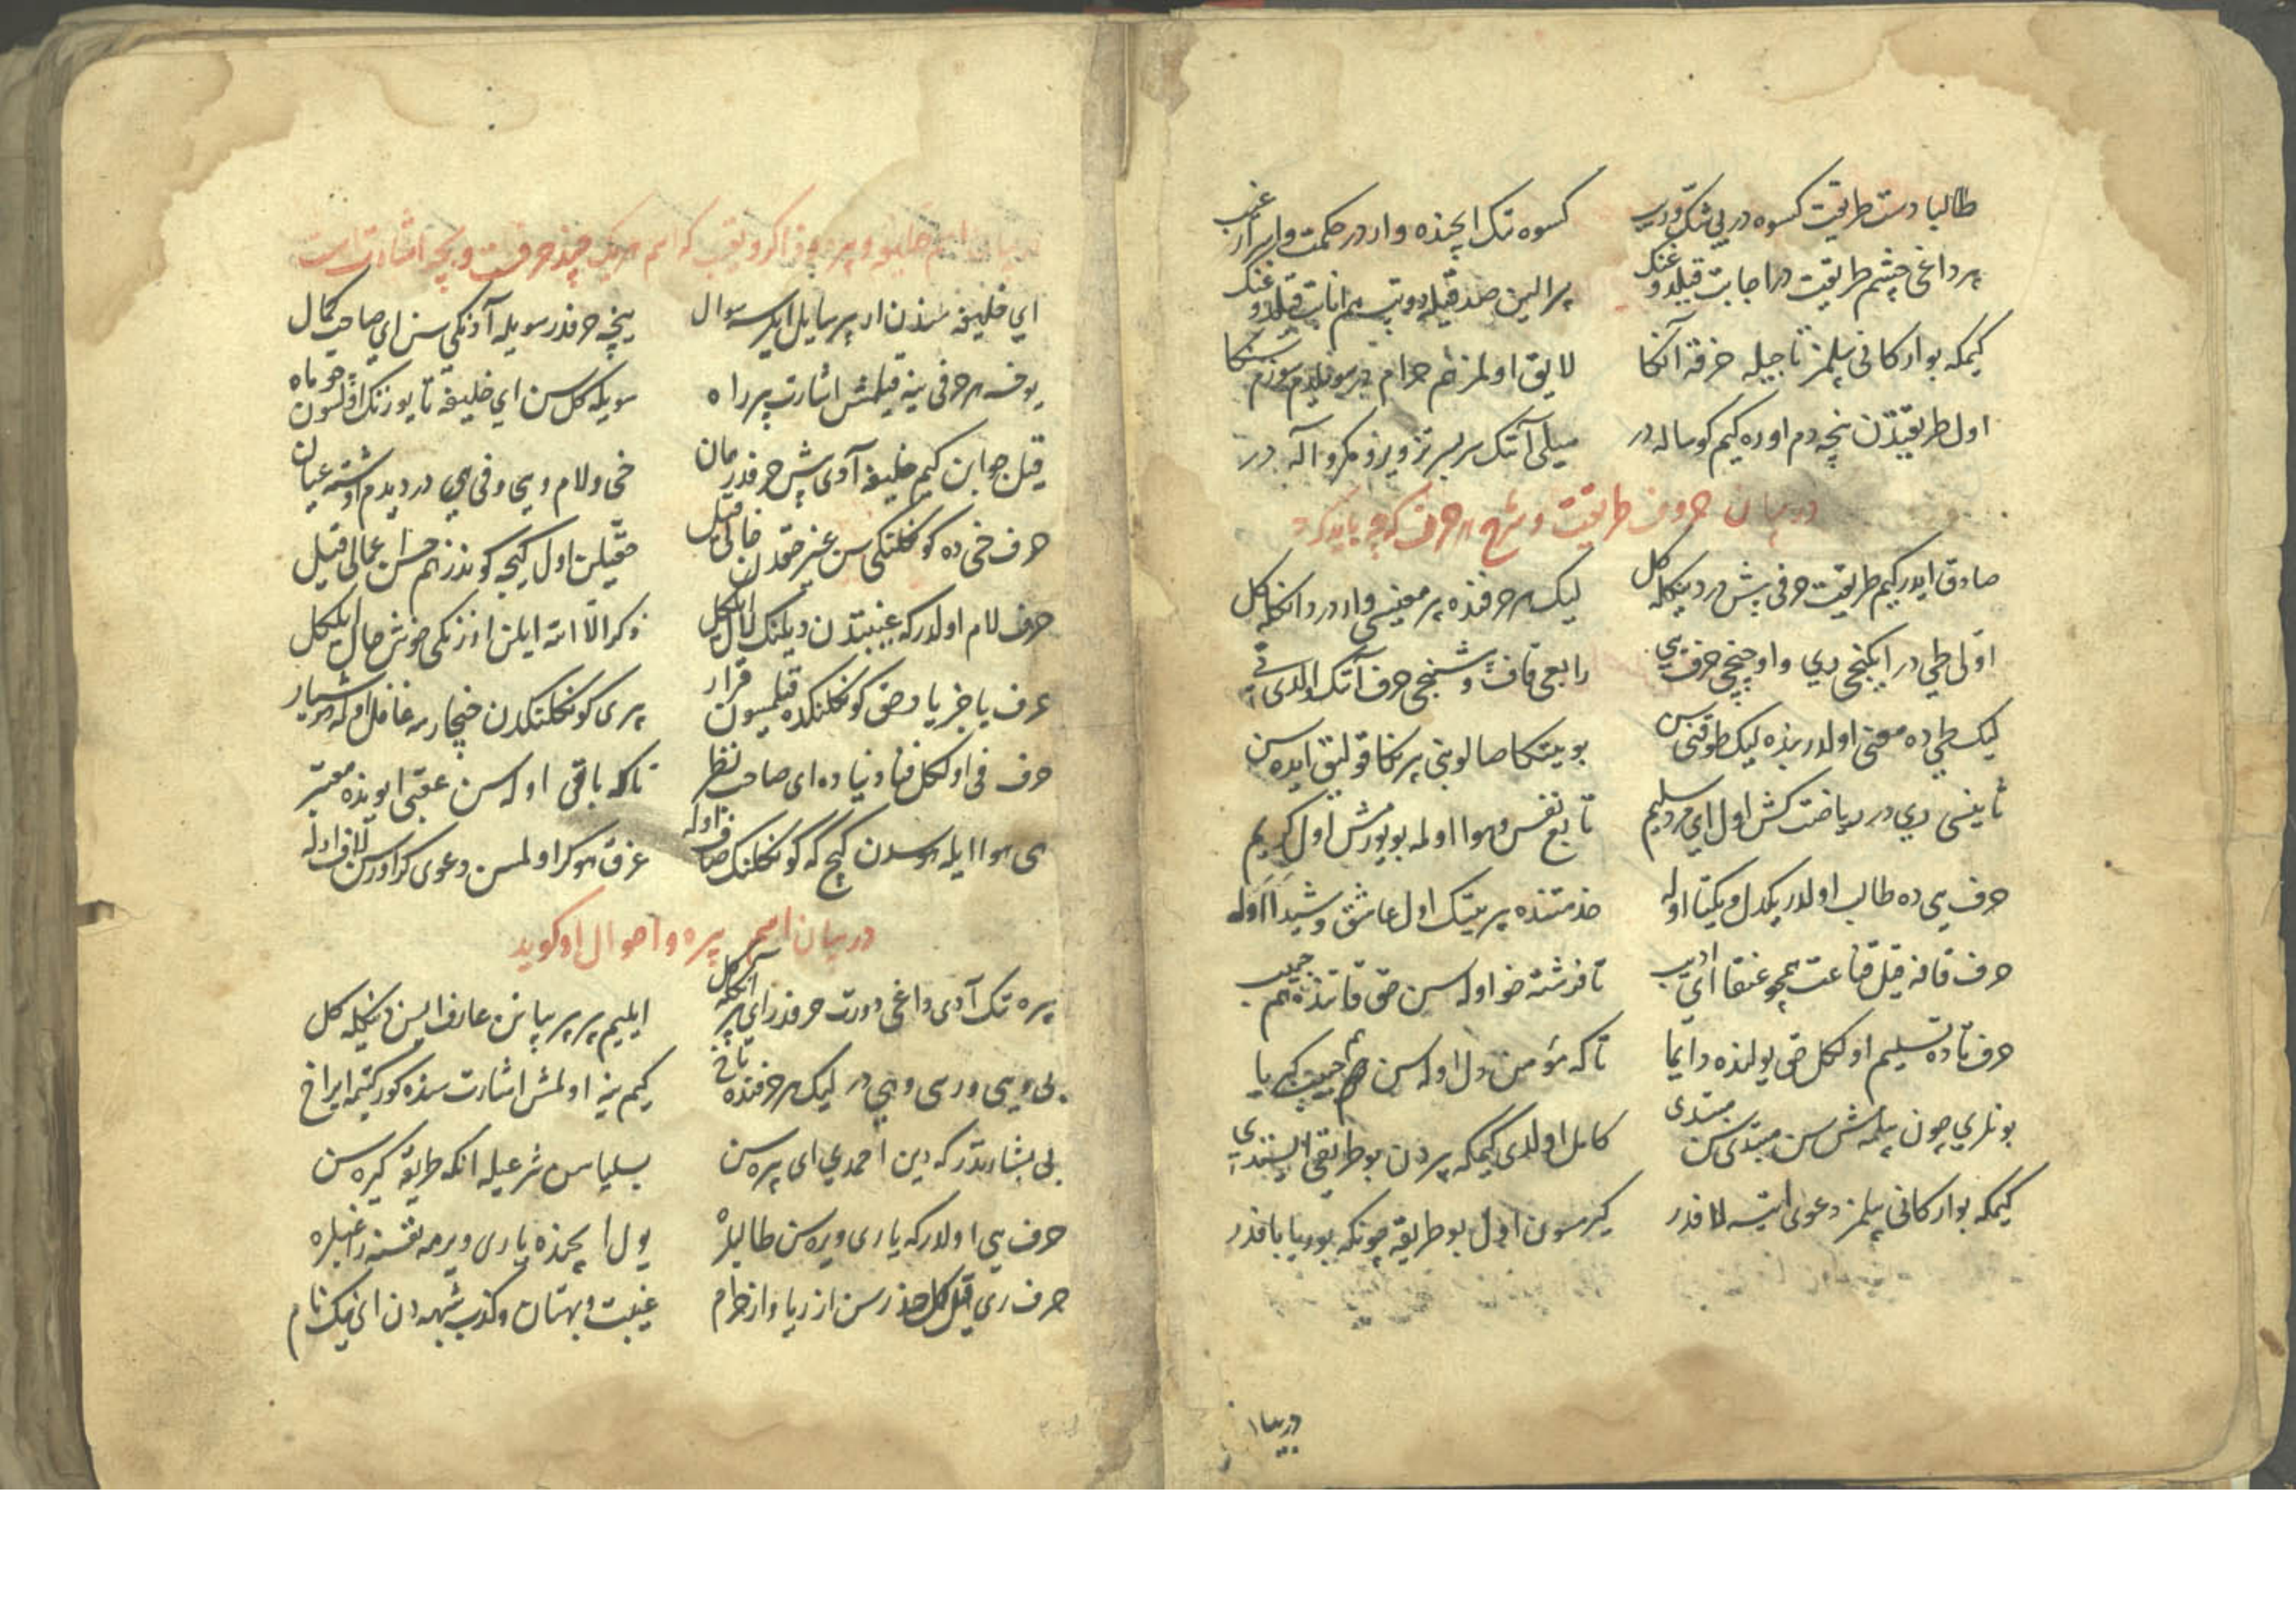 طالبا دست طریقت کسوه در بی شک و ریب کسوه تک ایچنده وار در حکمت و اسرار غیب
بر داغی چشم طریقت در اجابت قیلدوغنک بر الین صد قیلدو انابت قیلدوغنک
کیمکه بو ارکانی بیلمز تاجیله خرقه آنکا لایق اولمز هم حرام در سویلدم سوزم سنکا
اول طریقیدن نچه دم اوره کیم کوساله در میلی آنک سر بسر تزویر و مکر و آله در
در بیان حروف طریقت و شرح هر حرف که چه باید کرد
صادق ایدر کیم طریقت حرفی بش در دینکله کل لیک هر حرفنده بر معنیسی وار در دانکله کل
اولی طی در ایکنجی ری و اوچنجی حرف یی رابعی قاف و بشنجی حرف آنک اولدی تی
لیک طی ده معنی اولدر بنده لیک طوقنی سن بوینکا صالوبنی پر نکا قوللیق ایده سن
ثانیسی ری در ریاضت کش اول ای مرد سلیم تابع نفس و هوا اولمه بویورمش اول کریم
حرف یی ده طالب اولدر یکدل و یکتا اوله خدمتنده پرینک اول عاشق و شیدا اوله
حرف قافه قیل قناعت همچو عنقا ای ادیب تا فرشته خو اوله سن حق قاتنده هم حبیب
حرف تا ده تسلیم اولکل حق یولنده دایما تا که مؤمن دل اوله سن هم حبیب کبریا
بونلری چون بیلمه مش سن مبتدی سن مبتدی کامل اولدی کیمکه پردن بو طریقی ایستدی
کیمکه بو ارکانی بیلمز دعوی ایتسه لافدر کیرمسون اول بو طریقه چونکه بوریا بافدر
در بیان
اسم خلیفه و پیره و ذاکر و نقیب که اسم هر یک چند حرفست و بچه اشارت است
ای خلیفه سندن ار بر سایل ایلر سه سوال نیچه حرفدر سویله آدنکی سن ای صاحب کمال
بو هر حرفی نیه قیلمش اشارت پر راه سویله کل سن ای خلیفه تا یوزنک اولسون چو ماه
قیل جوابن کیم خلیفه آدی بش حرفدر همان خی و لام و یی و فی یی در دیدم اوشته عیان
حرف خی ده کونکلنکی سن غیر حقدن خالی قیل اول کیجه کوندز هم حسن عالی قیل
حرف لام اولدر که غیبتدن دیلنک لال ایلکل ذکر الا الله ایلن اوزنکی خوش حال ایلکل
حرف یا خر یا کونکلنکده قیلمسون قرار پری کونکلنکدن چیخارمه غافل اوله هوشیار
حرف فی اولکل فنا دنیا ده ای صاحب نظر تا که باقی اوله سن عقبی ایوینده معتبر
یی هوا ایله هوسدن کیچ که کونکلنک صاف اوله غرق هوکر اولمسن دعوی کر اورسن لاف اوله
در بیان اسم پیره و احوال او کوید
پیره تک آدی داغی دورت حرفدر ای پر انکله کل ایلیم بر بر بیانن عارف ایسن دنکله کل
بی و یی و ری و هی در لیک هر حرفنده تا نی کیم نیه اولمش اشارت سنده کورکیمه ایراغ
بی بشارتدر که دین احمدی ای پیره سن بسلیا سن شرعیله انکه طریقه کیره سن
حرف یی اولدر که یاری ویره سن طالبلره یول ایچنده یاری ویرمه نفسنه راغبلره
حرف ری قیل کل حذر سن از ریا و از حرام غیبت و بهتان و کذب شبهه دن ای نیک نام
در بیا